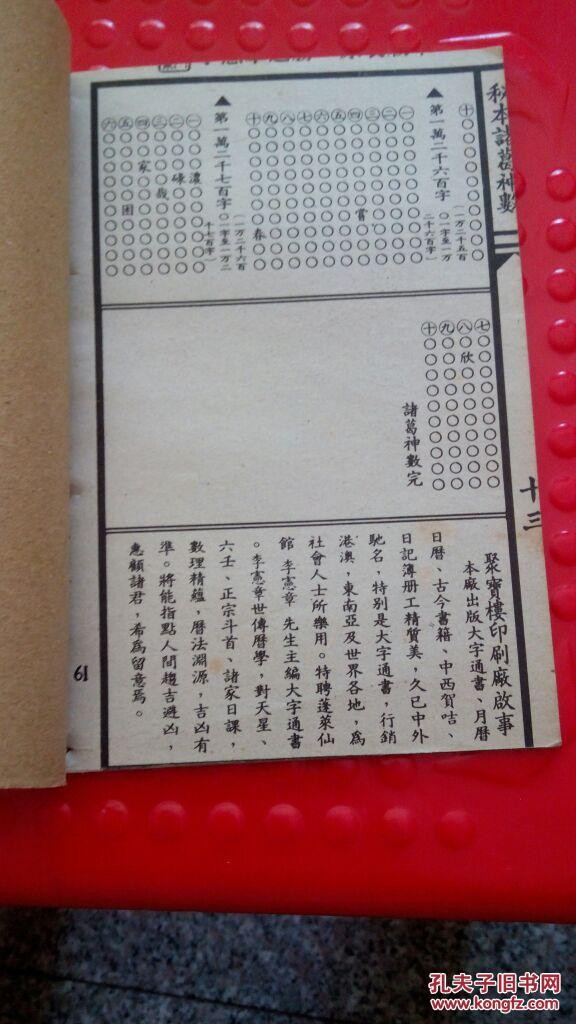 秘本諸葛神數
十三
㊉○○○○○○○○○○
(一万二千五百
○一字至一万
二千六百字)
▲第一萬二千六百字
㊀○○○○○○○○○○
㊁○○○○○○○○○○
㊂○○○○○○○○○○
㊃○○○○○賞○○○○
㊄○○○○○○○○○○
㊅○○○○○○○○○○
㊆○○○○○○○○○○
㊇○○○○○○○○○○
㊈○○○○○○○○○○
㊉○○○○○○○春○○
(一万二千六百
○一字至一万二
千七百字)
▲第一萬二千七百字
㊀○○○濃○○○○○○
㊁○○○碌○○○○○○
㊂○○○○哉○○○○○
㊃○○家○○○○○○○
㊄○○○○○困○○○○
㊅○○○○○○○○○○
㊆○○○○○○○○○○
㊇○欣○○○○○○○○
㊈○○○○○○○○○○
㊉○○○○○○○○○○
諸葛神數完
聚寶樓印刷廠啟事
本廠出版大字通書、月曆
日曆、古今書籍、中西賀咭、
日記簿册工精質美，久已中外
馳名，特别是大字通書，行銷
港澳，東南亞及世界各地，為
社會人士所樂用。特聘蓬萊仙
館 李憲章 先生主編大字通書
。李憲章世傳曆學，對天星、
六壬、正宗斗首、諸家日課，
數理精蘊，曆法淵源，吉凶有
準。將能指點人間趨吉避凶，
惠顧諸君，希為留意焉。
61
孔夫子旧书网
www.kongfz.com